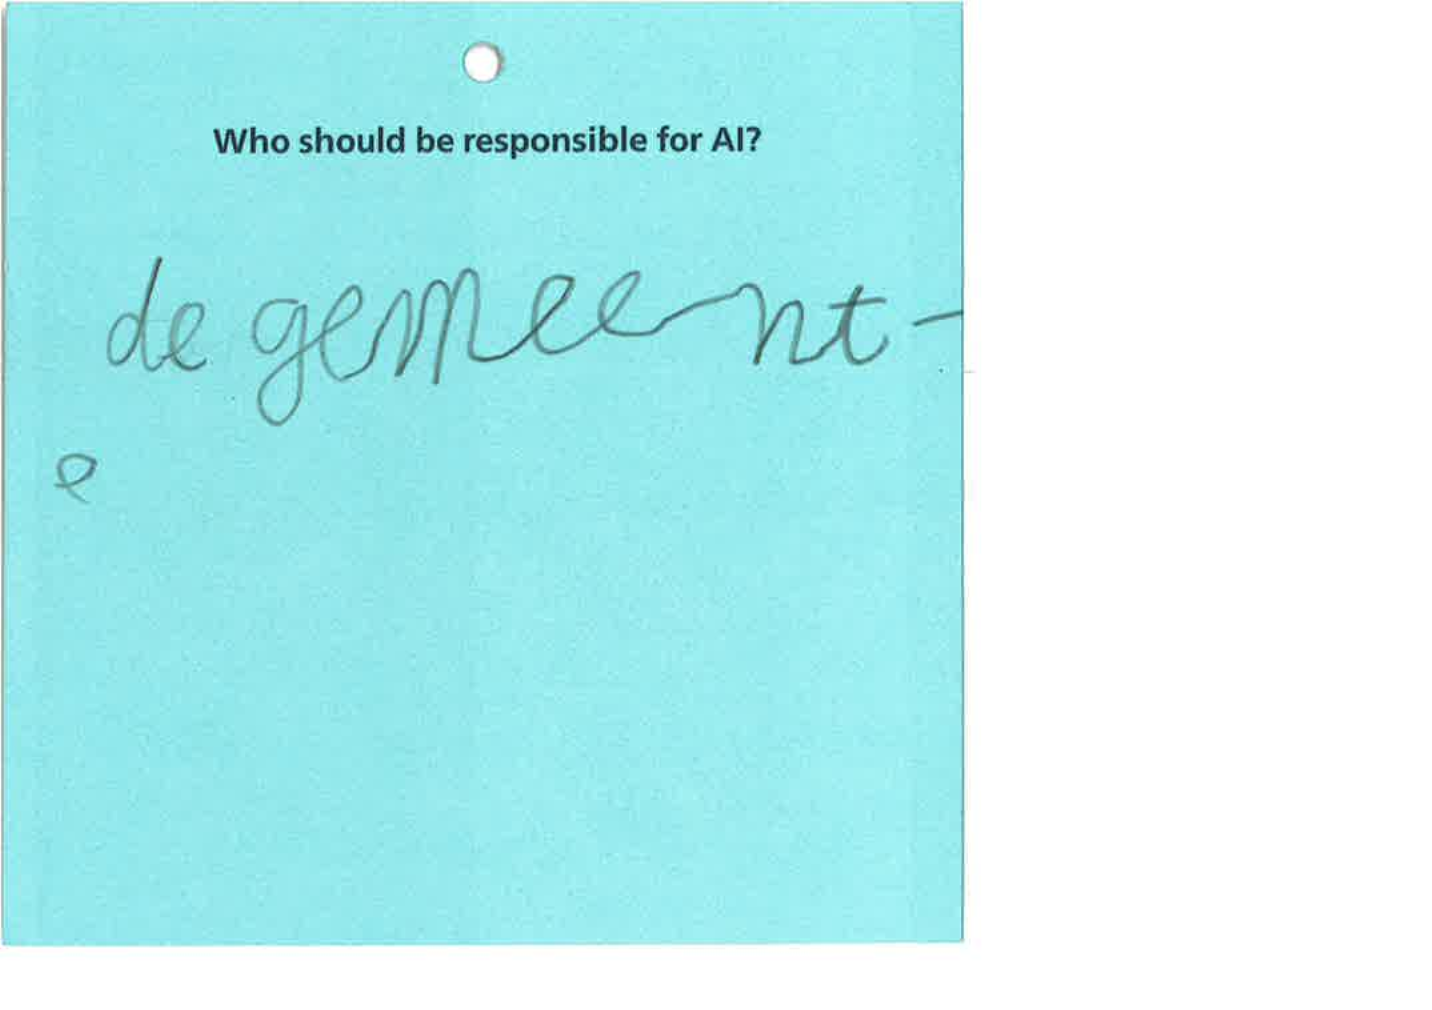 Who should be responsible for AI?
de gemeent-
e